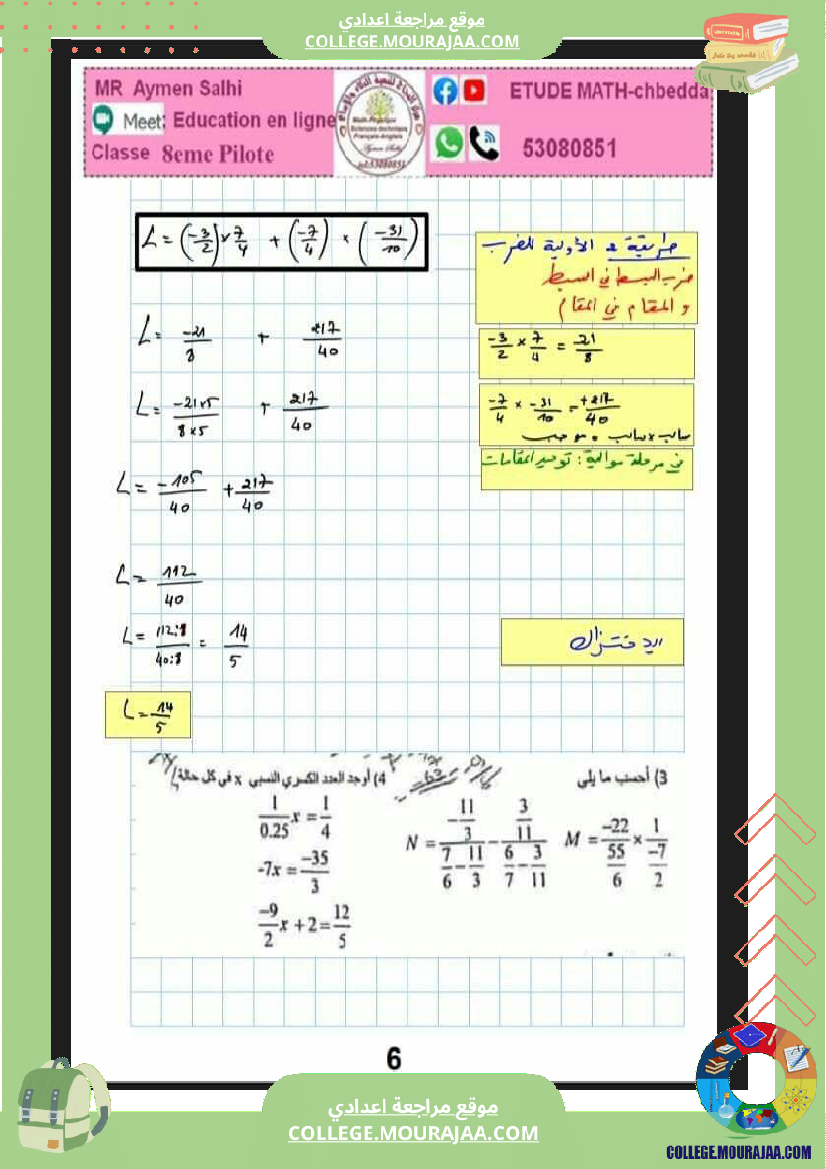 موقع مراجعة اعدادي
COLLEGE.MOURAJAA.COM
MR Aymen Salhi
Meet: Education en ligne
Classe 8eme Pilote
ETUDE MATH-chbedda
53080851
L = (-3/2) × 7/4 + (-7/4) × (-31/10)
طريقة الأولية للضرب
ضرب البسط في البسط
و المقام في المقام
L = -21/8 + 217/40
-3/2 × 7/4 = -21/8
L = -21×5/8×5 + 217/40
-7/4 × -31/10 = +217/40
سالب × سالب = موجب
في مرحلة موالية: توحيد المقامات
L = -105/40 + 217/40
L = 112/40
L = 112:8/40:8 = 14/5
الاختزال
L = 14/5
3) أحسب ما يلي
4) أوجد العدد الكسري النسبي x في كل حالة
M = -22/(55/6) × 1/(-7/2)
N = (-11/3)/(7/6 - 11/3) - (3/11)/(6/7 - 3/11)
1/0.25 x = 1/4
-7x = -35/3
-9/2 x + 2 = 12/5
6
موقع مراجعة اعدادي
COLLEGE.MOURAJAA.COM
COLLEGE.MOURAJAA.COM